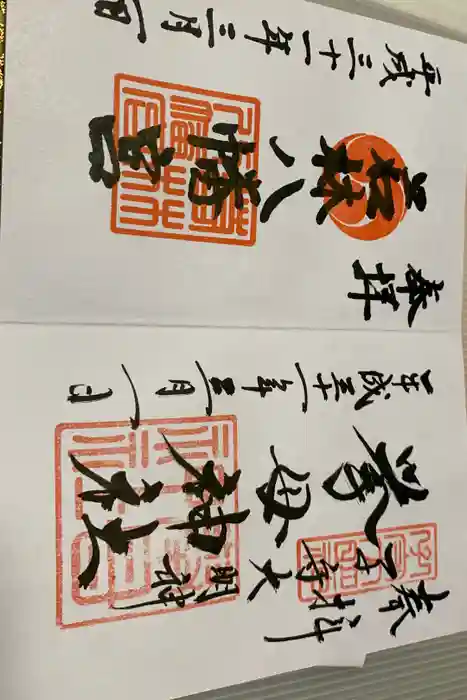 奉拝
八幡宮
平成三十一年三月一日
奉拝
子守大明神
擧母神社
平成三十一年三月一日